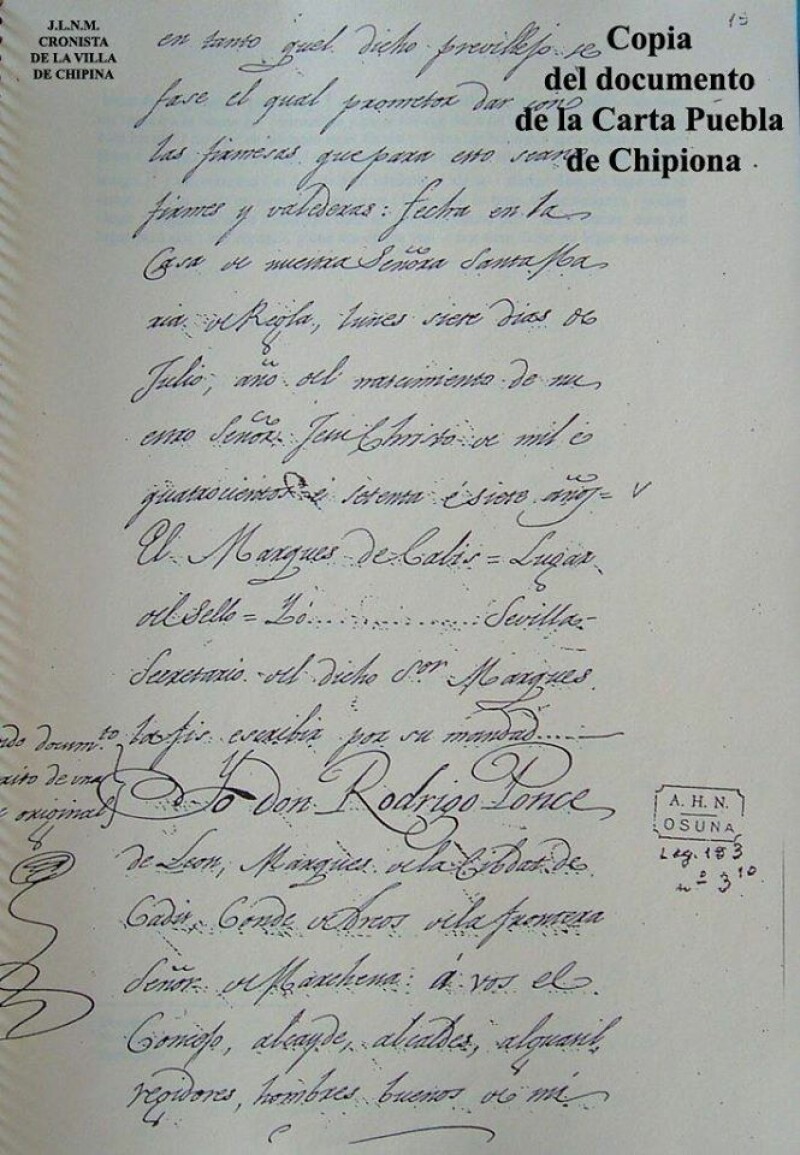 J.L.N.M.
CRONISTA
DE LA VILLA
DE CHIPINA
Copia
del documento
de la Carta Puebla
de Chipiona
15
en tanto quel dicho previllejo se
fase el qual prometo dar con
las firmesas que para esto sean
firmes y valederas: fecha en la
Casa de nuestra Señora Santa Ma
ria de Regla, lunes siete dias de
Julio, año del nascimiento de nu
estro Señor Jesu Christo de mil é
quatrocientos é setenta é siete años=
El Marques de Calis = Lugar
del Sello = Yó ................ Sevilla
Secretario del dicho Sor Marques
la fis escribir por su mandad......
Yo don Rodrigo Ponce
de Leon, Marques de la Cibdat de
Cadis, Conde de Arcos de la frontera
Señor de Marchena: á vos el
Concejo, alcayde, alcaldes, alguasil,
regidores, hombres buenos de mi
docum.to
de una
original
A. H. N.
OSUNA
Leg. 193
nº 3 10